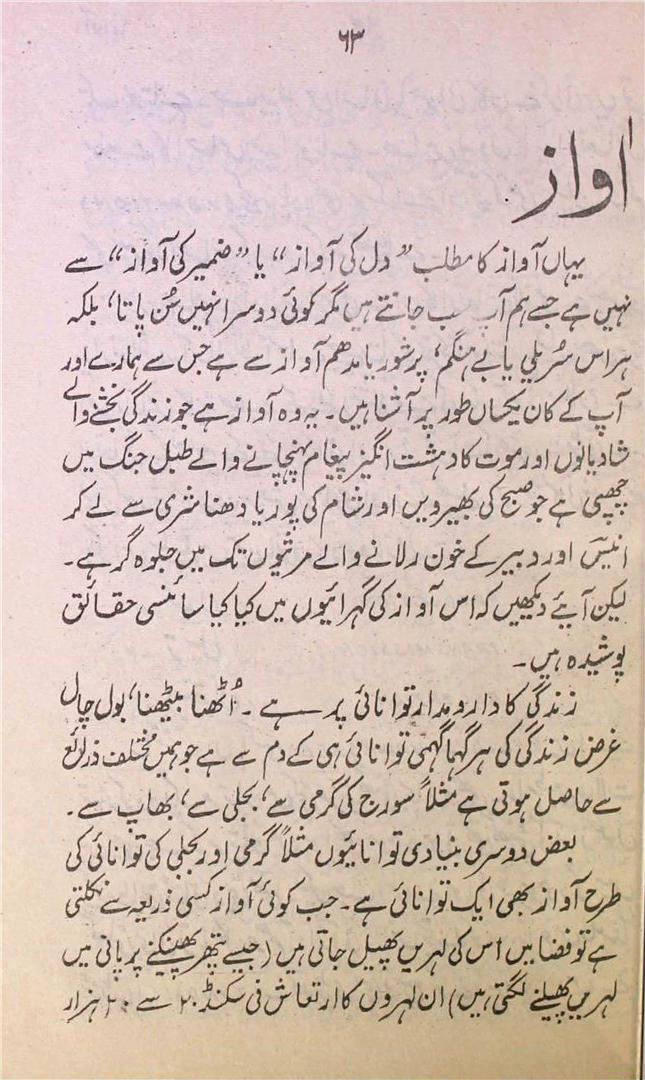 ۶۳
آواز
یہاں آواز کا مطلب ”دل کی آواز“ یا ”ضمیر کی آواز“ سے
نہیں ہے جسے ہم آپ سب جانتے ہیں مگر کوئی دوسرا نہیں سُن پاتا، بلکہ
ہر اس سُریلی یا بے ہنگم، پرشور یا مدھم آواز سے ہے جس سے ہمارے اور
آپ کے کان یکساں طور پر آشنا ہیں۔ یہ وہ آواز ہے جو زندگی بخشنے والے
شادیانوں اور موت کا دہشت انگیز پیغام پہنچانے والے طبل جنگ میں
چھپی ہے جو صبح کی بھیرویں اور شام کی پوریا دھناشری سے لے کر
انیسؔ اور دبیر کے خون رلانے والے مرثیوں تک میں جلوہ گر ہے۔
لیکن آیئے دیکھیں کہ اس آواز کی گہرائیوں میں کیا کیا سائنسی حقائق
پوشیدہ ہیں۔
زندگی کا دارومدار توانائی پر ہے۔ اُٹھنا بیٹھنا، بول چال
غرض زندگی کی ہر گہما گہمی توانائی ہی کے دم سے ہے جو ہمیں مختلف ذرائع
سے حاصل ہوتی ہے مثلاً سورج کی گرمی سے، بجلی سے، بھاپ سے۔
بعض دوسری بنیادی توانائیوں مثلاً گرمی اور بجلی کی توانائی کی
طرح آواز بھی ایک توانائی ہے۔ جب کوئی آواز کسی ذریعہ سے نکلتی
ہے تو فضا میں اُس کی لہریں پھیل جاتی ہیں (جیسے پتھر پھینکنے پر پانی میں
لہریں پھیلنے لگتی ہیں) ان لہروں کا ارتعاش فی سکنڈ ۲۰ سے ۲۰ ہزار